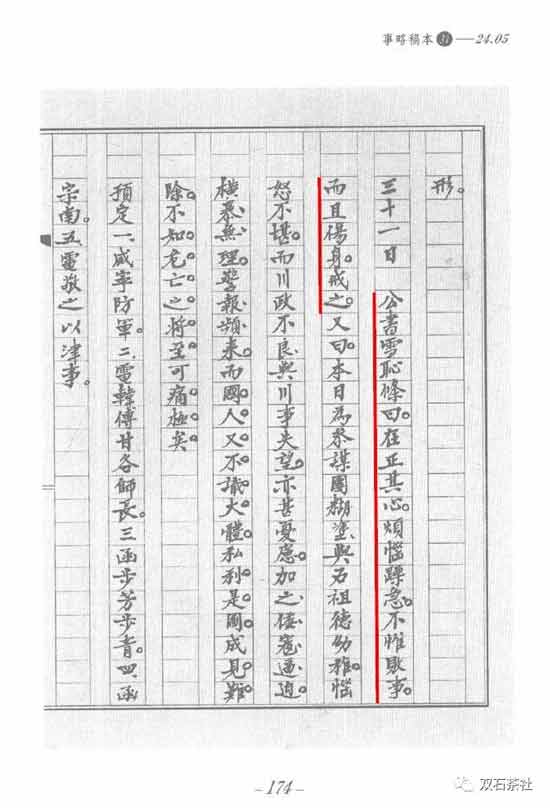 事略稿本31—24.05
形。
三十一日　公書雪恥條曰。在正其心。煩惱躁急。不惟敗事。
而且傷身。戒之。又曰。本日為參謀團糊塗。與石祖德幼稚。惱
怒不堪。而川政不良。與川事失望。亦甚憂慮。加之倭寇逼迫。
橫暴無理。警報頻來。而國人又不識大體。私利是圖。成見難
除。不知危亡之將至。可痛極矣。
預定一、咸寧防軍。二、電韓傅甘各師長。三、函步芳步青。四、函
宗南。五、電敬之以津事。
-174-
双石茶社